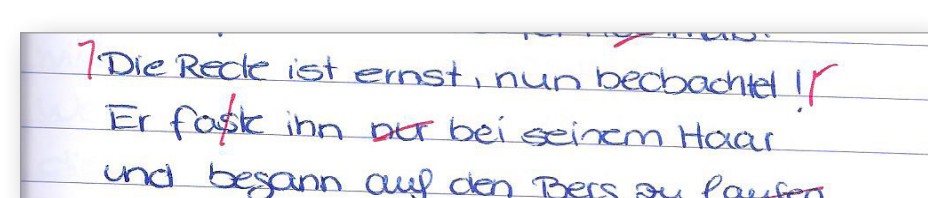 Die Rede ist ernst, nun beobachtet!
Er faßte ihn nur bei seinem Haar
und begann auf den Berg zu laufen